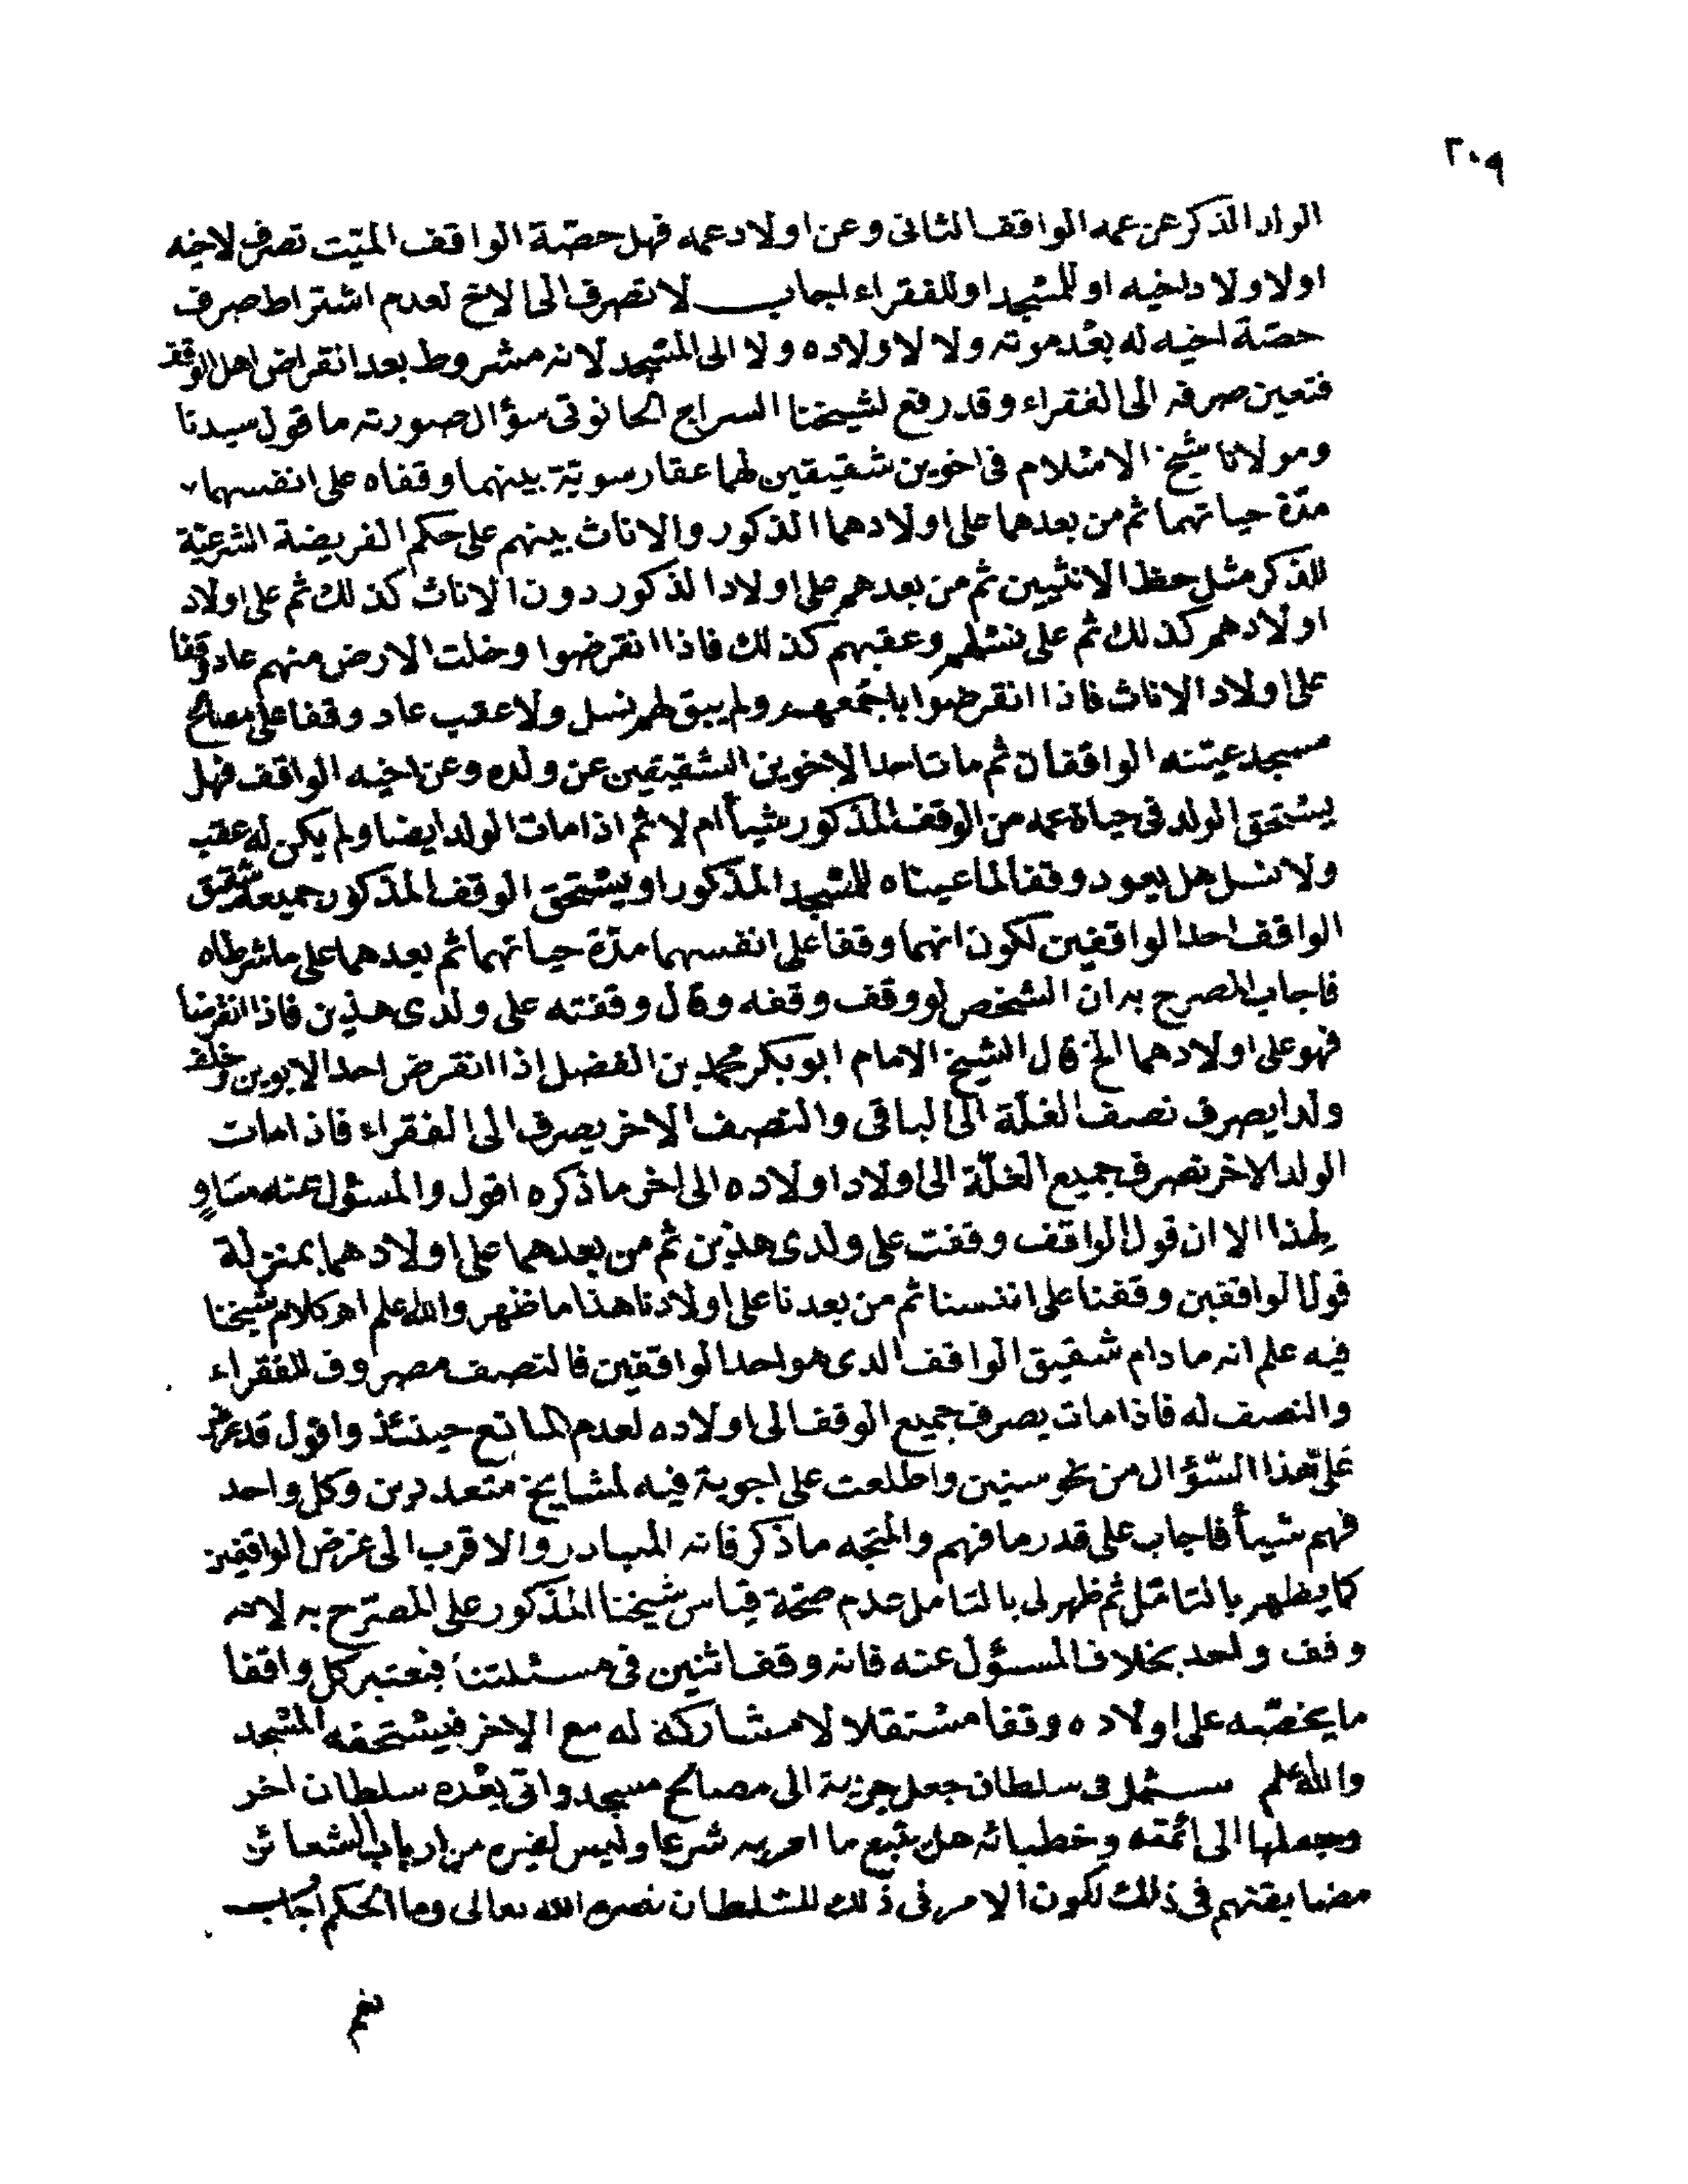 ٢٠٩
الولد الذكر عن عمه الواقف الثانى وعن اولاد عمه فهل حصّة الواقف الميّت تصرف لاخيه
او لاولاد اخيه او للمسجد او للفقراء اجاب لا تصرف الى الاخ لعدم اشتراط صرف
حصّة اخيه له بعد موته ولا لاولاده ولا الى المسجد لانه مشروط بعد انقراض اهل الوقف
فتعين صرفه الى الفقراء وقد رفع لشيخنا السراج الحانوتى سؤال صورته ما قول سيدنا
ومولانا شيخ الاسلام فى اخوين شقيقين لهما عقار سويّة بينهما وقفاه على انفسهما
مدّة حياتهما ثم من بعدهما على اولادهما الذكور والاناث بينهم على حكم الفريضة الشرعيّة
للذكر مثل حظ الانثيين ثم من بعدهم على اولاد الذكور دون الاناث كذلك ثم على اولاد
اولادهم كذلك ثم على نسلهم وعقبهم كذلك فاذا انقرضوا وخلت الارض منهم عاد وقفا
على اولاد الاناث فاذا انقرضوا باجمعهم ولم يبق لهم نسل ولا عقب عاد وقفا على مصالح
مسجد عيّنه الواقفان ثم مات احد الاخوين الشقيقين عن ولده وعن اخيه الواقف فهل
يستحق الولد فى حياة عمه من الوقف المذكور شيأ ام لا ثم اذا مات الولد ايضا ولم يكن له عقب
ولا نسل هل يعود وقفا لما عيناه للمسجد المذكور او يستحق الوقف المذكور جميعه شقيق
الواقف احد الواقفين لكون انهما وقفا على انفسهما مدّة حياتهما ثم بعدهما على ما شرطاه
فاجاب المصرح به ان الشخص لو وقف وقفه وقال وقفته على ولدى هذين فاذا انقرضا
فهو على اولادهما الخ قال الشيخ الامام ابو بكر محمد بن الفضل اذا انقرض احد الابوين وخلف
ولدا يصرف نصف الغلّة الى الباقى والنصف الاخر يصرف الى الفقراء فاذا مات
الولد الاخر تصرف جميع الغلّة الى اولاد اولاده الى اخر ما ذكره اقول والمسؤل عنه مساوٍ
لهذا الا ان قول الواقف وقفت على ولدى هذين ثم من بعدهما على اولادهما بمنزلة
قول الواقفين وقفنا على انفسنا ثم من بعدنا على اولادنا هذا ما ظهر والله اعلم اهـ كلام شيخنا
فيه علم انه ما دام شقيق الواقف الذى هو احد الواقفين فالنصف مصروف للفقراء
والنصف له فاذا مات يصرف جميع الوقف الى اولاده لعدم المانع حينئذ واقول قد عرض
علىّ هذا السّؤال من نحو سنين واطلعت على اجوبة فيه لمشايخ متعددين وكل واحد
فهم شيأ فاجاب على قدر ما فهم والمتجه ما ذكر فانه المبادر والاقرب الى غرض الواقفين
كما يظهر بالتامّل ثم ظهر لى بالتامل عدم صحّة قياس شيخنا المذكور على المصرّح به لانه
وقف واحد بخلاف المسؤل عنه فانه وقف اثنين فى مسئلتنا فنعتبر كل واقفا
ما يخصّه على اولاده وقفا مستقلا لا مشاركة له مع الاخر فيستحقه المسجد
والله اعلم سئل فى سلطان جعل جزية الى مصالح مسجد واتى بعده سلطان اخر
وجعلها الى ائمّته وخطبائه هل يتبع ما امر به شرعا وليس لغيره من ارباب الشعائر
مضايقتهم فى ذلك لكون الامر فى ذلك للسلطان نصره الله تعالى وما الحكم اجاب
نعم